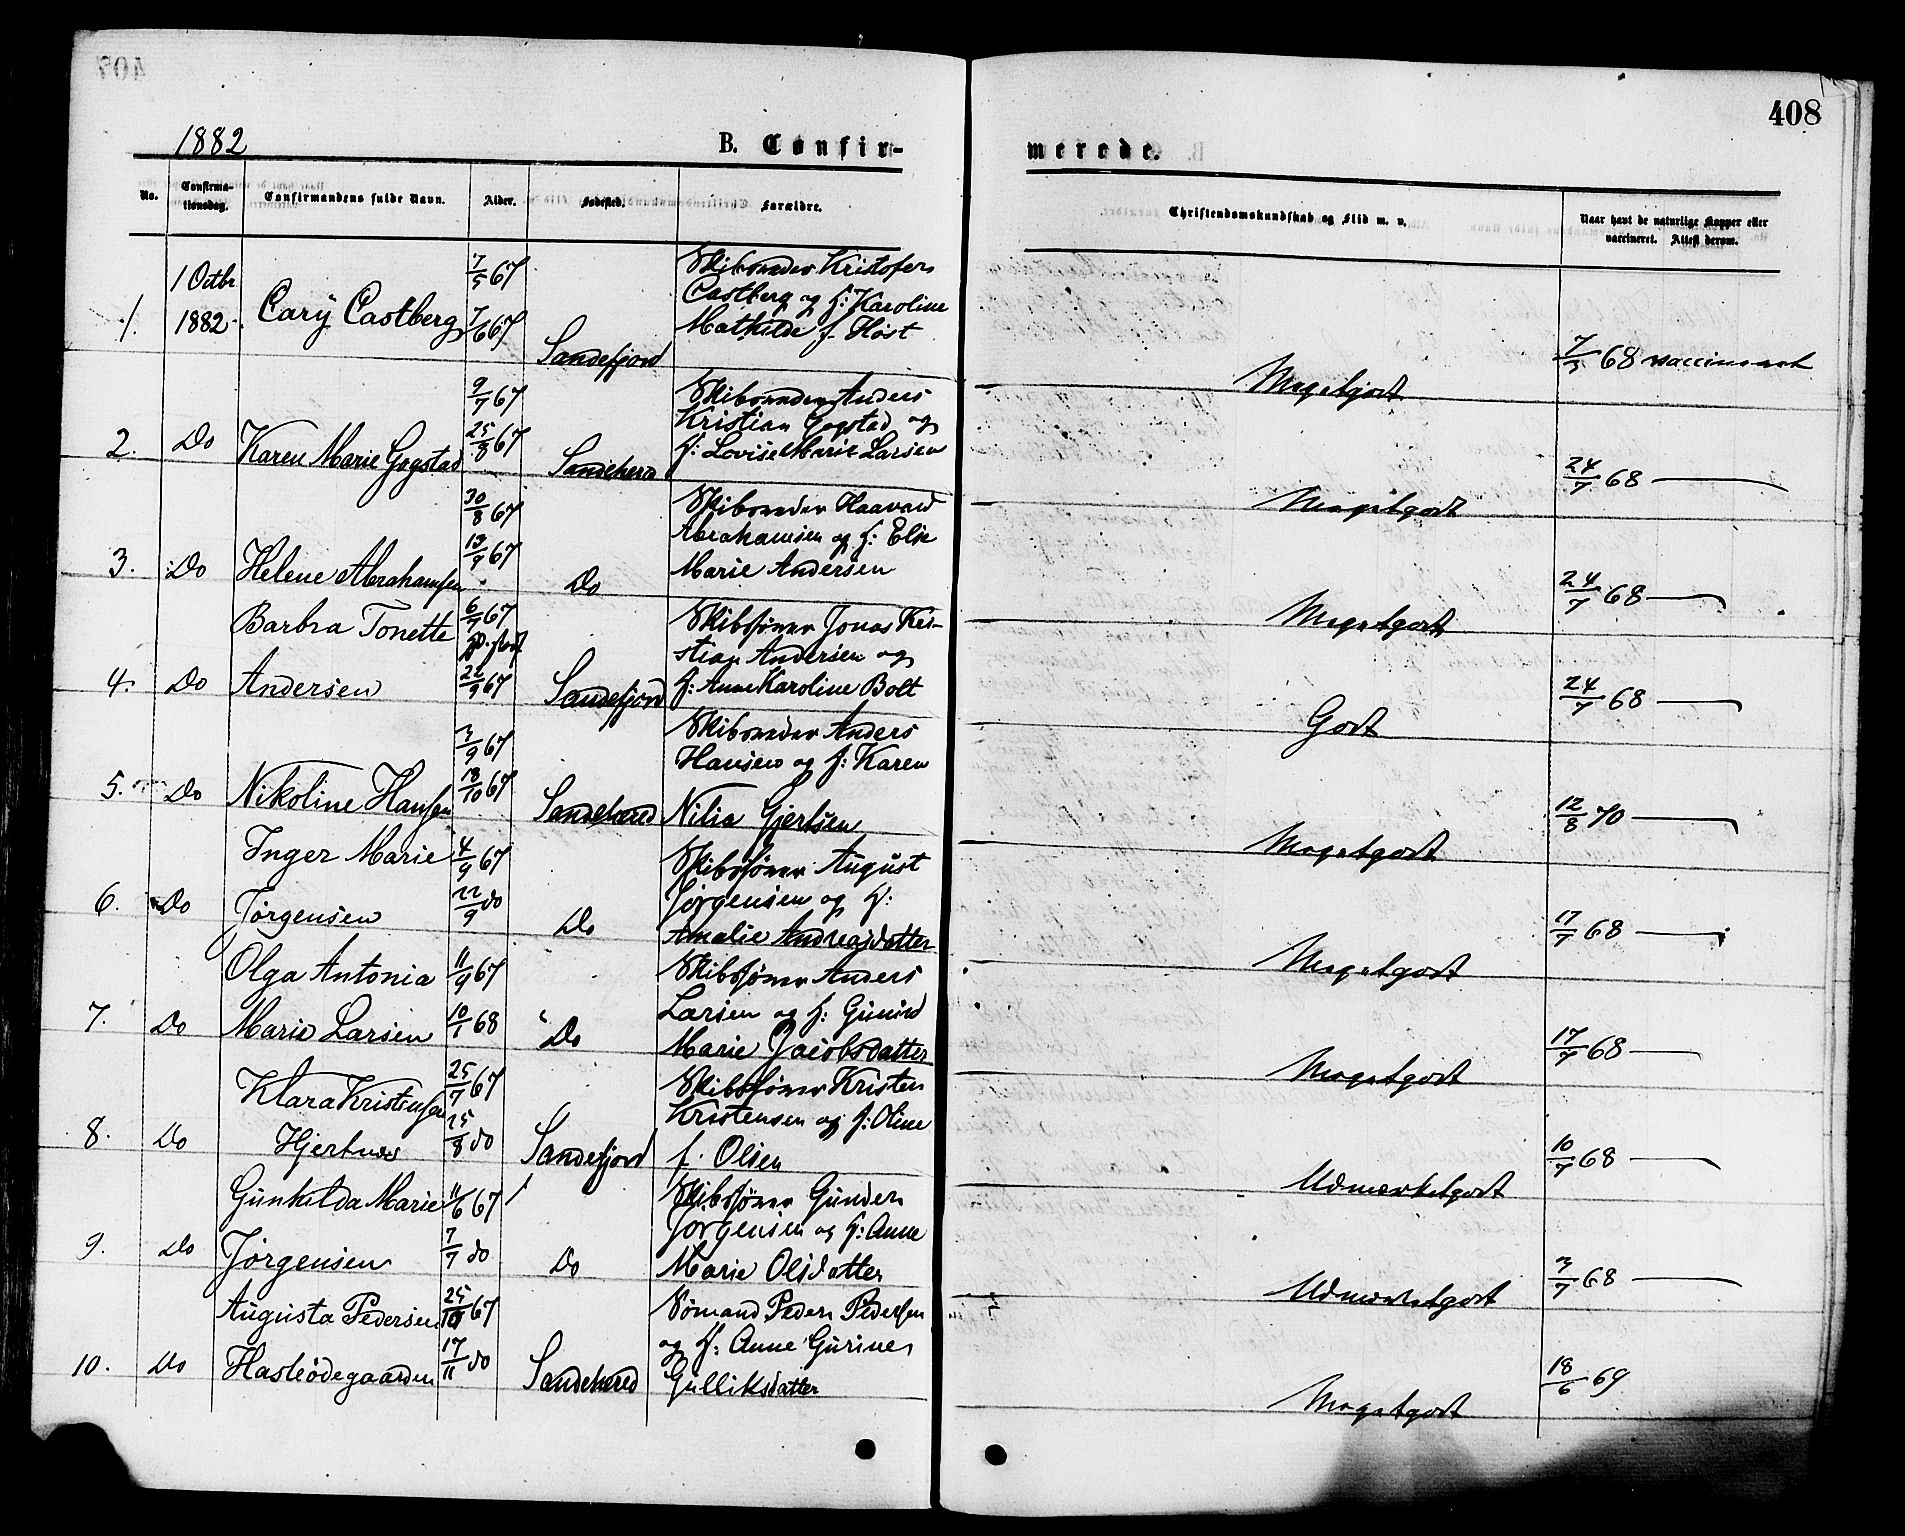 408
1882
B. Confir-
merede.
No.
Confirma-
tionsdag.
Confirmandens fulde Navn.
Alder.
Fødested.
Forældre.
Christendomskundskab og Flid m. v.
Naar havt de naturlige Kopper eller
vaccineret. Attest derom.
1. 1 Octbr 1882. Cary Castberg 7/5 67 7/6 67 Sandefjord
Skibsreder Kristofer
Castberg og H: Karoline
Mathilde f. Høst
Megetgodt 68 vaccineret
2. Do Karen Marie Gogstad 9/7 67 25/8 67 Sandeherd
Skibsreder Anders
Kristian Gogstad og
H: Lovise Marie Larsen
Megetgodt 24/7 68
3. Do Helene Abrahamsen 30/8 67 13/9 67 Do
Skibsreder Haavard
Abrahamsen og H: Else
Marie Andersen
Megetgodt 24/7 68
Barbra Tonette
4. Do Andersen 67 22/9 67 Sandefjord
Skibsfører Jonas Kri-
stian Andersen og
H: Anne Karoline Bolt
Godt 24/7 68
5. Do Nikoline Hansen 3/9 67 18/10 67 Sandeherred
Skibsreder Anders
Hansen og H: Karen
Nilia Gjertsen
Megetgodt 12/8 70
Inger Marie
6. Do Jørgensen 4/9 67 22/9 do Do
Skibsfører August
Jørgensen og H:
Amalie Andreasdatter
Megetgodt 17/7 68
Olga Antonia
7. Do Marie Larsen 11/9 67 10/1 68 Do
Skibsfører Anders
Larsen og H: Gunild
Marie Jacobsdatter
Megetgodt 17/7 68
Klara Kristensen
8. Do Hjertnes 25/7 67 25/8 do Sandefjord
Skibsfører Kristen
Kristensen og H: Oline
f. Olsen
Udmerketgodt 10/7 68
Gunhilda Marie
9. Do Jørgensen 11/6 67 7/7 do Do
Skibsfører Gunder
Jørgensen og H: Anne
Marie Olsdatter
Udmerketgodt 3/7 68
Augusta Pedersen
10. Do Hasleødegaarden 25/10 67 17/11 do Sandeherred
Sømand Peder Pedersen
og H: Anne Gurine
Gulliksdatter
Megetgodt 18/6 69